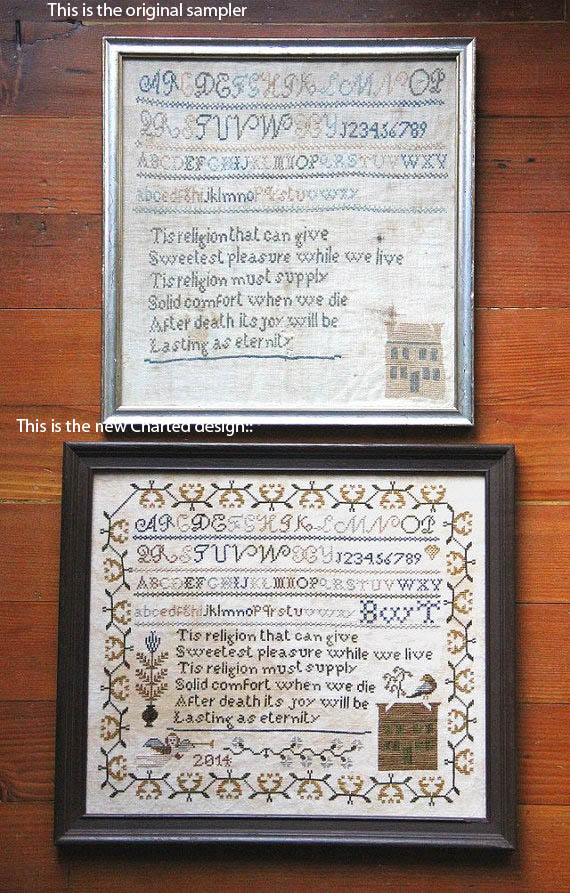 This is the original sampler
ABCDEFGHIKLMNOP
QRSTUVWXY123456789
ABCDEFGHIJKLMNOPQRSTUVWXY
abcdefghijklmnopqrstuvwxy
Tis religion that can give
Sweetest pleasure while we live
Tis religion must supply
Solid comfort when we die
After death its joy will be
Lasting as eternity
This is the new Charted design::
ABCDEFGHIKLMNOP
QRSTUVWXY123456789
ABCDEFGHIJKLMNOPQRSTUVWXY
abcdefghijklmnopqrstuvwxy BWT
Tis religion that can give
Sweetest pleasure while we live
Tis religion must supply
Solid comfort when we die
After death its joy will be
Lasting as eternity
2014